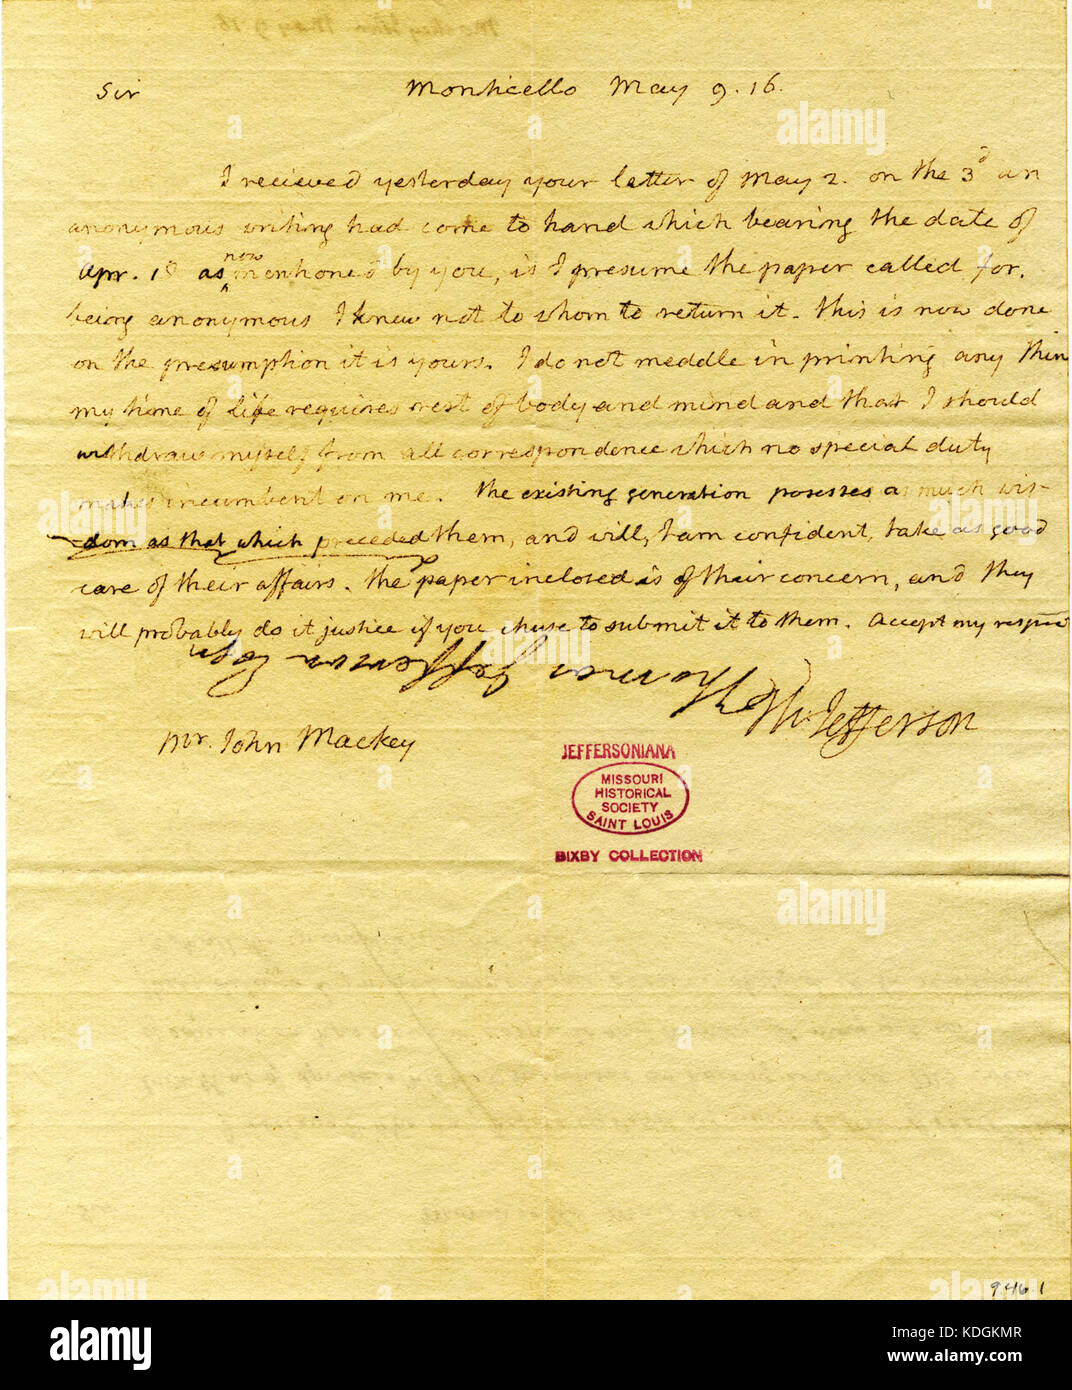 Sir Monticello May 9. 16.
I recieved yesterday your letter of May 2. on the 3d an
anonymous writing had come to hand which bearing the date of
Apr. 18 as now mentioned by you, is I presume the paper called for.
being anonymous I knew not to whom to return it. this is now done
on the presumption it is yours. I do not meddle in printing any thin
my time of life requires rest of body and mind and that I should
withdraw myself from all correspondence which no special duty
makes incumbent on me. the existing generation posesses as much wis-
dom as that which preceded them, and will, I am confident, take as good
care of their affairs. the paper inclosed is of their concern, and they
will probably do it justice if you chuse to submit it to them. Accept my respec
Thomas Jefferson Esqr.
Th: Jefferson
Mr. John Mackey
JEFFERSONIANA
MISSOURI
HISTORICAL
SOCIETY
SAINT LOUIS
BIXBY COLLECTION
946.1
alamy
a
Image ID: KDGKMR
www.alamy.com